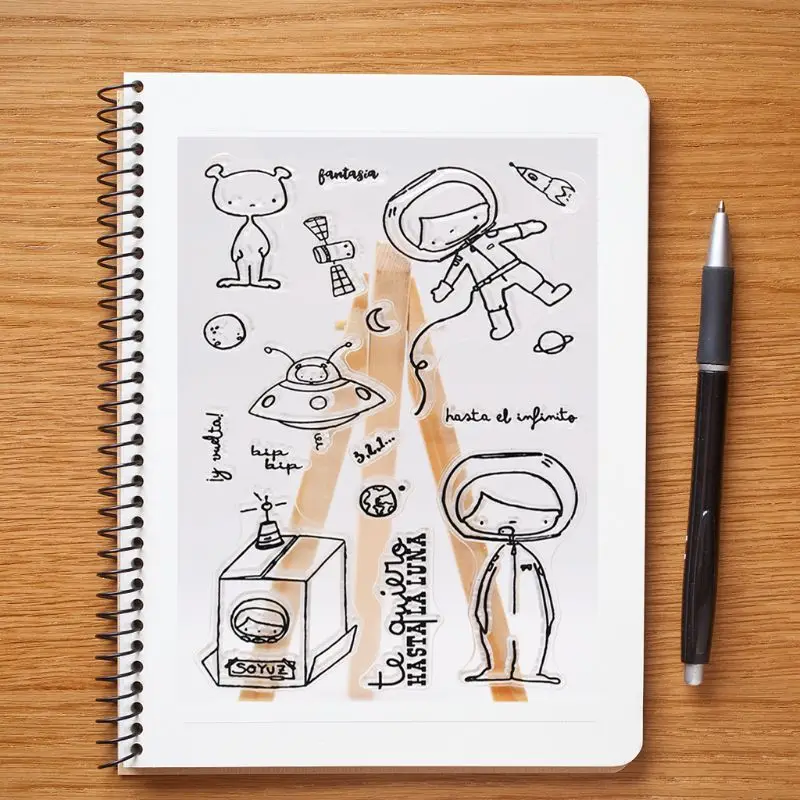 fantasia
hasta el infinito
¡y vuelta!
bip
bip
3,2,1...
te quiero
HASTA LA LUNA
SOYUZ